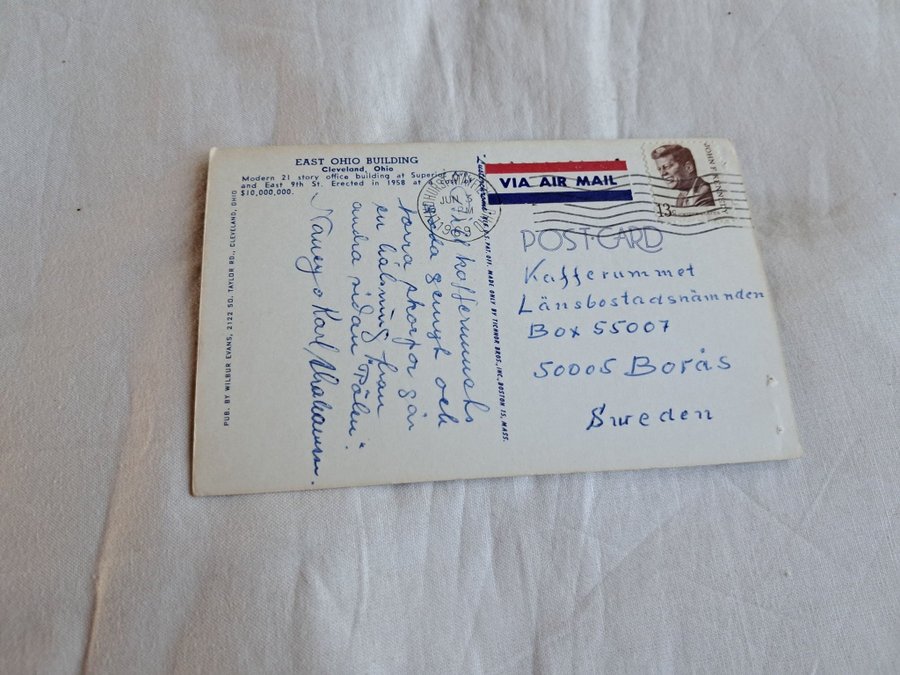 EAST OHIO BUILDING
Cleveland, Ohio
Modern 21 story office building at Superior
and East 9th St. Erected in 1958 at a cost of
$10,000,000.
PUB. BY WILBUR EVANS, 2122 SO. TAYLOR RD., CLEVELAND, OHIO
genuyt och
torra skorpor går
en hälsning från
andra sidan Pölen".
Nancy o Karl Abrahamson.
"Lusterchrome" REG. U.S. PAT. OFF. MADE ONLY BY TICHNOR BROS., INC., BOSTON 15, MASS.
VIA AIR MAIL
JUN 5
PM
JOHN F. KENNEDY
13c
POST CARD
Kafferummet
Länsbostadsnämnden
Box 55007
50005 Borås
Sweden